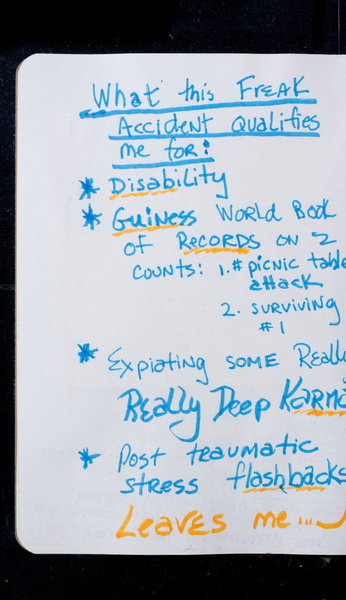 What this Freak
Accident Qualifies
me for:
* Disability
* Guiness World Book
of Records on 2
counts: 1. # picnic table
attack
2. surviving
#1
* Expiating some Really
Really Deep Karma
* Post traumatic
stress flashbacks
Leaves me...